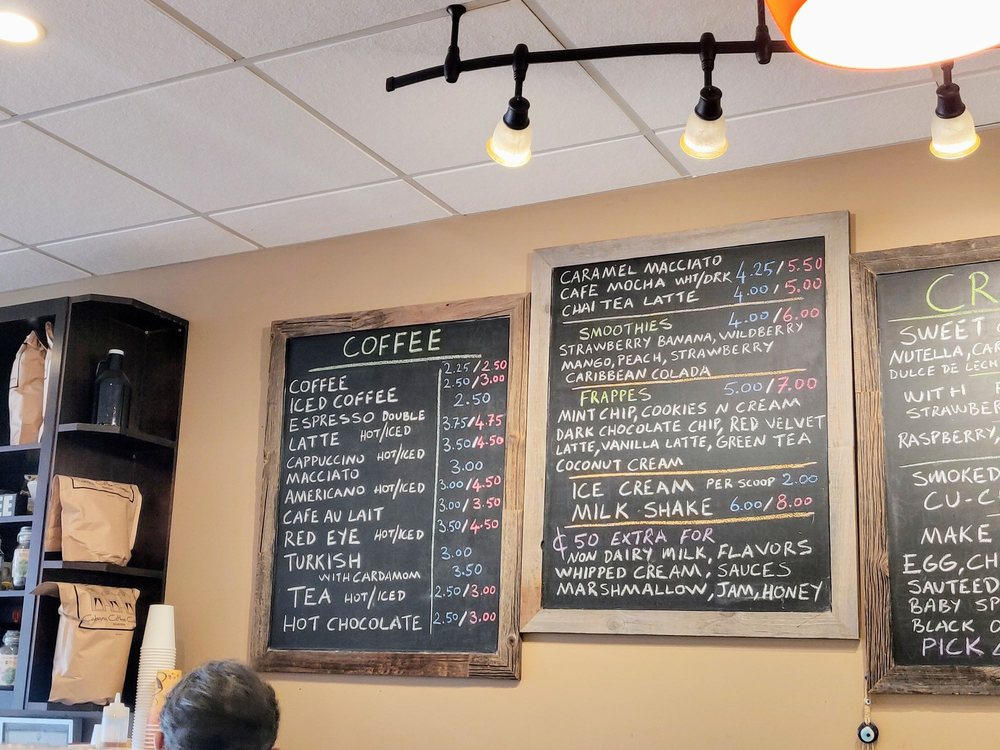 COFFEE
COFFEE 2.25/2.50
ICED COFFEE 2.50/3.00
ESPRESSO DOUBLE 2.50
LATTE HOT/ICED 3.75/4.75
CAPPUCCINO HOT/ICED 3.50/4.50
MACCIATO 3.00
AMERICANO HOT/ICED 3.00/4.50
CAFE AU LAIT 3.00/3.50
RED EYE HOT/ICED 3.50/4.50
TURKISH 3.00
WITH CARDAMOM 3.50
TEA HOT/ICED 2.50/3.00
HOT CHOCOLATE 2.50/3.00
CARAMEL MACCIATO 4.25/5.50
CAFE MOCHA WHT/DRK
CHAI TEA LATTE 4.00/5.00
SMOOTHIES 4.00/6.00
STRAWBERRY BANANA, WILDBERRY
MANGO, PEACH, STRAWBERRY
CARIBBEAN COLADA
FRAPPES 5.00/7.00
MINT CHIP, COOKIES N CREAM
DARK CHOCOLATE CHIP, RED VELVET
LATTE, VANILLA LATTE, GREEN TEA
COCONUT CREAM
ICE CREAM PER SCOOP 2.00
MILK SHAKE 6.00/8.00
¢50 EXTRA FOR
NON DAIRY MILK, FLAVORS
WHIPPED CREAM, SAUCES
MARSHMALLOW, JAM, HONEY
CR
SWEET
NUTELLA, CAR
DULCE DE LECH
WITH
STRAWBER
RASPBERRY,
SMOKED
CU-C
MAKE
EGG, CH
SAUTEED
BABY SP
BLACK O
PICK